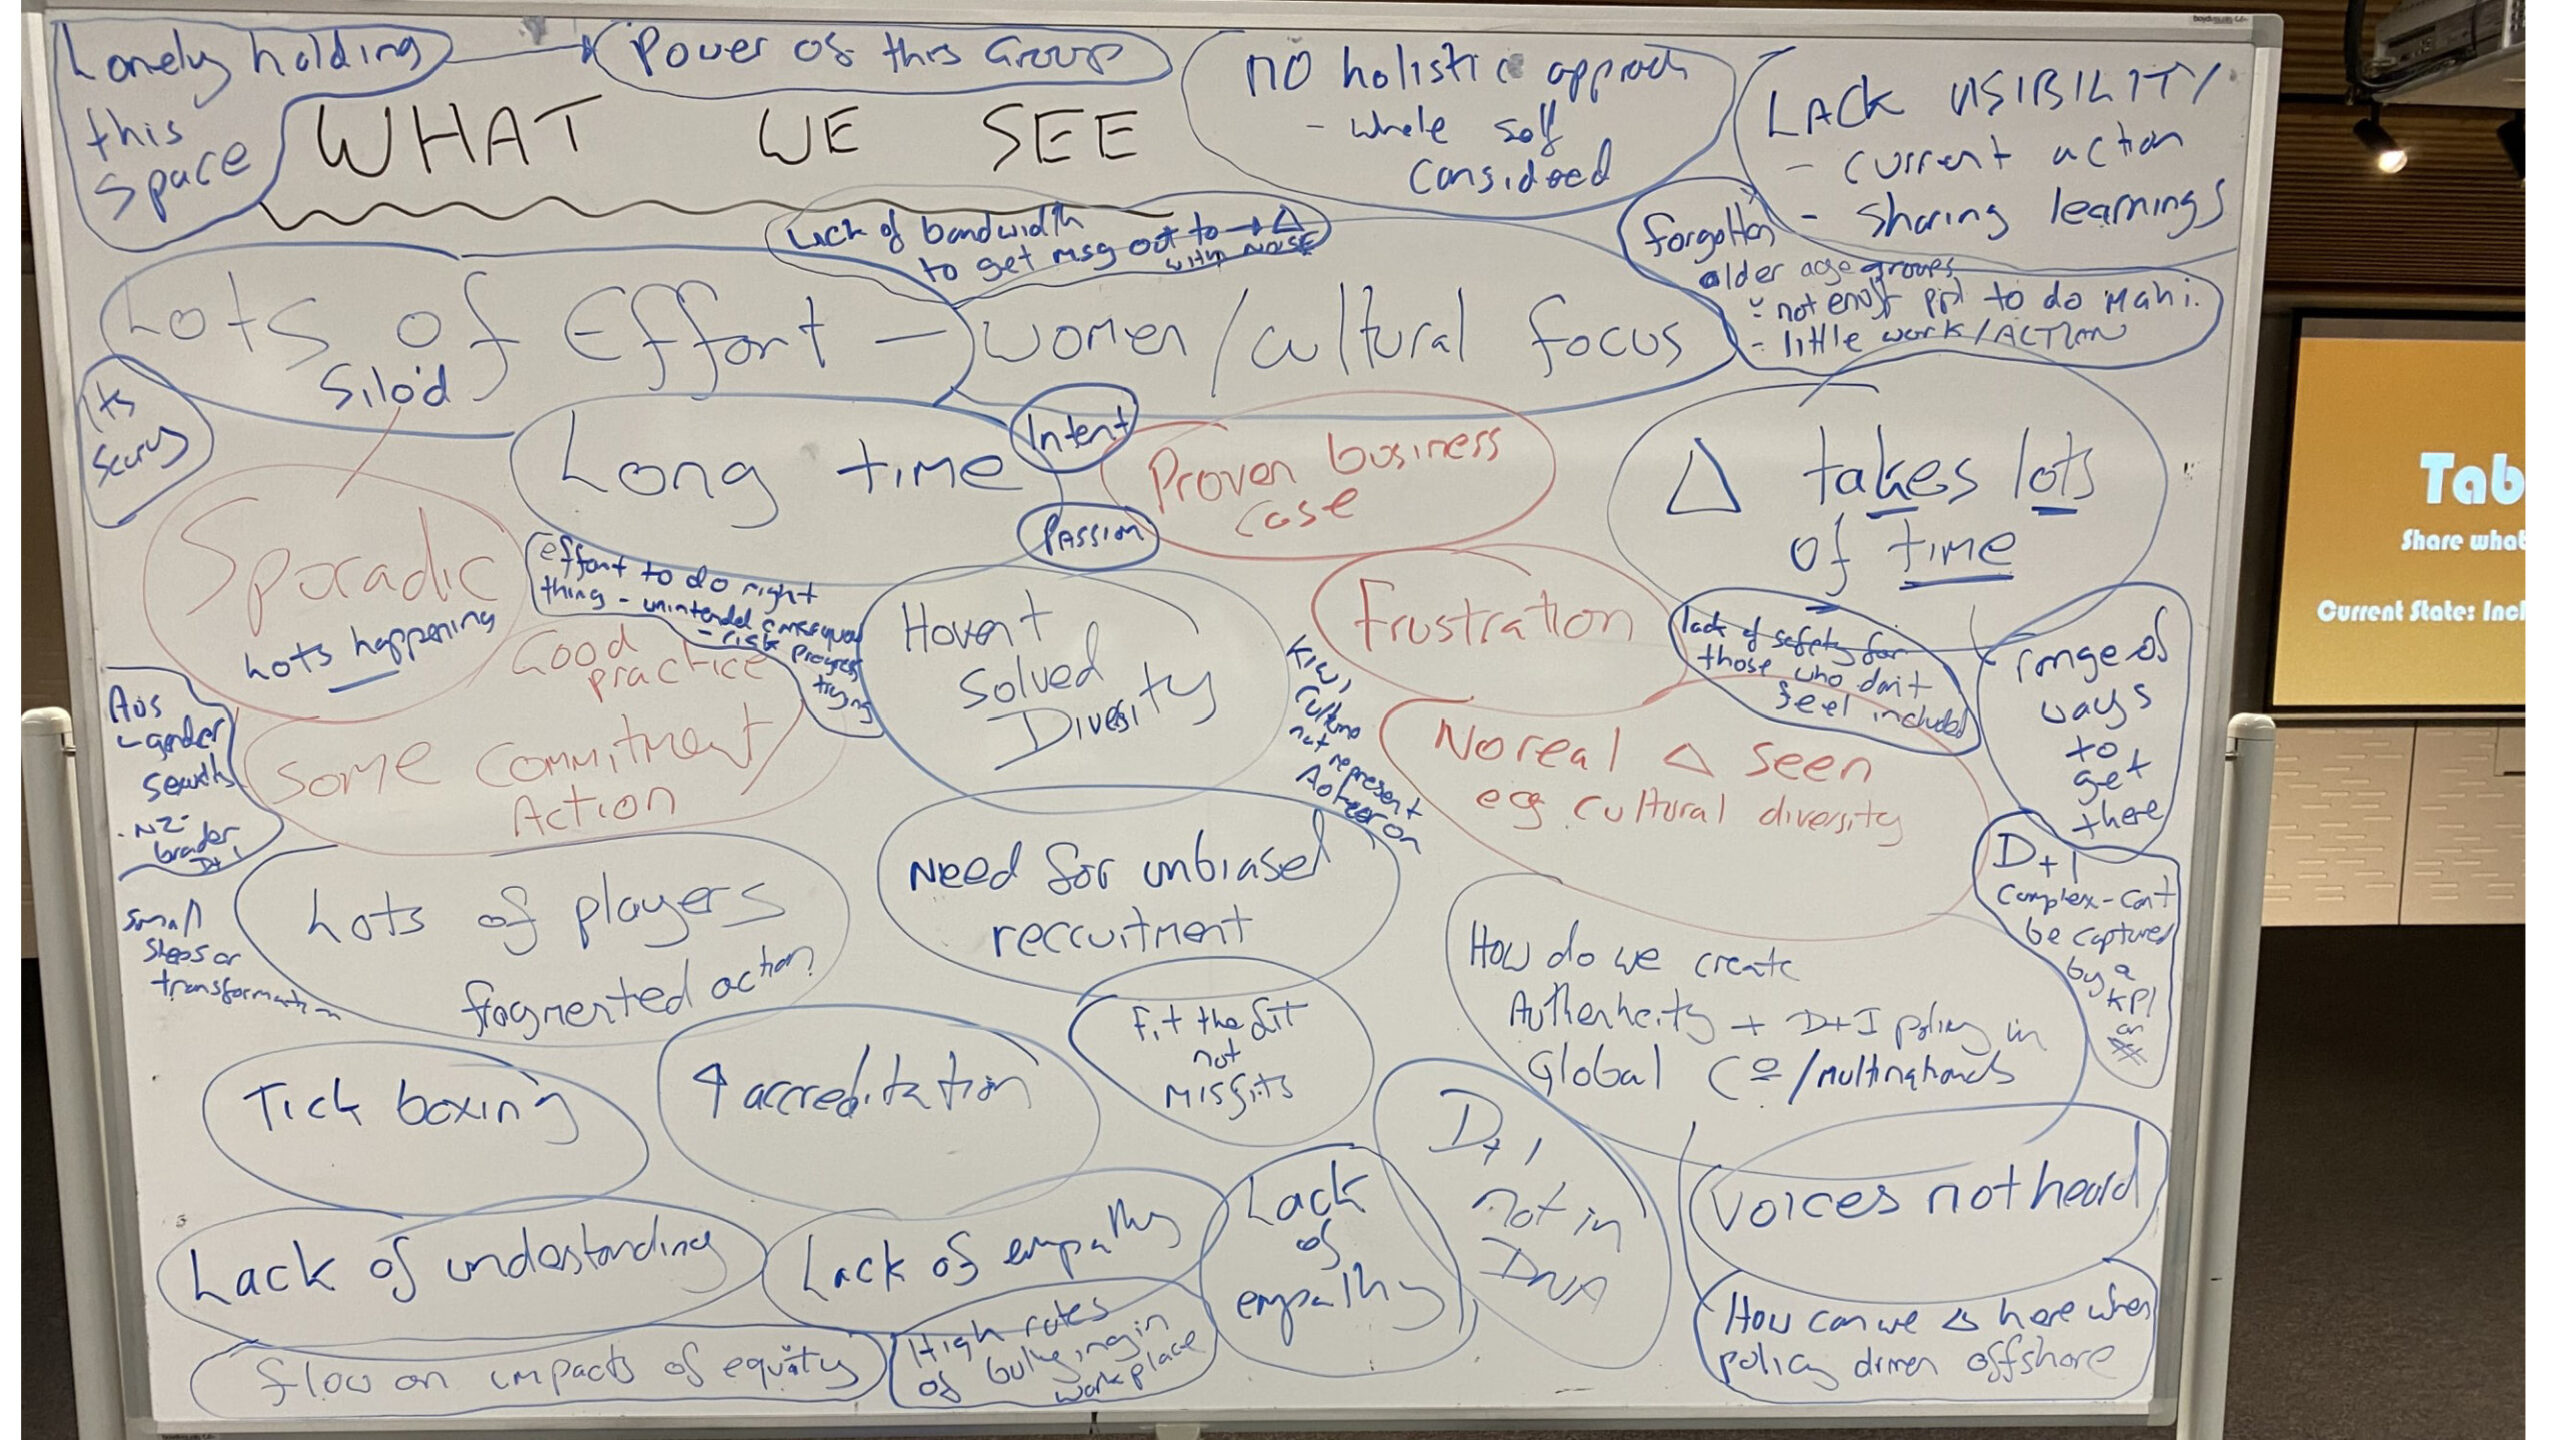 Lonely holding
this
space
Power of this Group
WHAT WE SEE
no holistic approach
- whole self
considered
LACK VISIBILITY
- current action
- sharing learnings
Lack of bandwidth
to get msg out to → Δ
with NOISE
forgotten
older age groups
- not enuf ppl to do mahi.
- little work/ACTION
Lots of Effort -
Silo'd
women/cultural focus
Its
scary
Long time
Intent
Passion
Proven business
case
Δ takes lots
of time
Sporadic
Lots happening
effort to do right
thing - unintended
- risk progress
trying
Good
practice
Havent
solved
Diversity
Frustration
lack of safety for
those who don't
feel included
range of
ways
to
get
there
Aus
- gender
. NZ -
broader
D+I
Some Commitment
Action
Kiwi
Culture
not
represent
No real Δ seen
eg cultural diversity
D+I
complex - can't
be captured
by a
KPI
or
#
small
steps or
Lots of players
fragmented action
Need for unbiased
reccuitment
How do we create
Authenticity + D+I policy in
Global Co/multinationals
Tick boxing
↑ accreditation
Fit the fit
not
misfits
D+I
not in
DNA
Voices not heard
Lack of understanding
Lack of empathy
Lack
of
empathy
How can we Δ here when
policy driven offshore
flow on impacts of equity
High rates
of bullying in
workplace
Tab
Share what
Current State: Incl